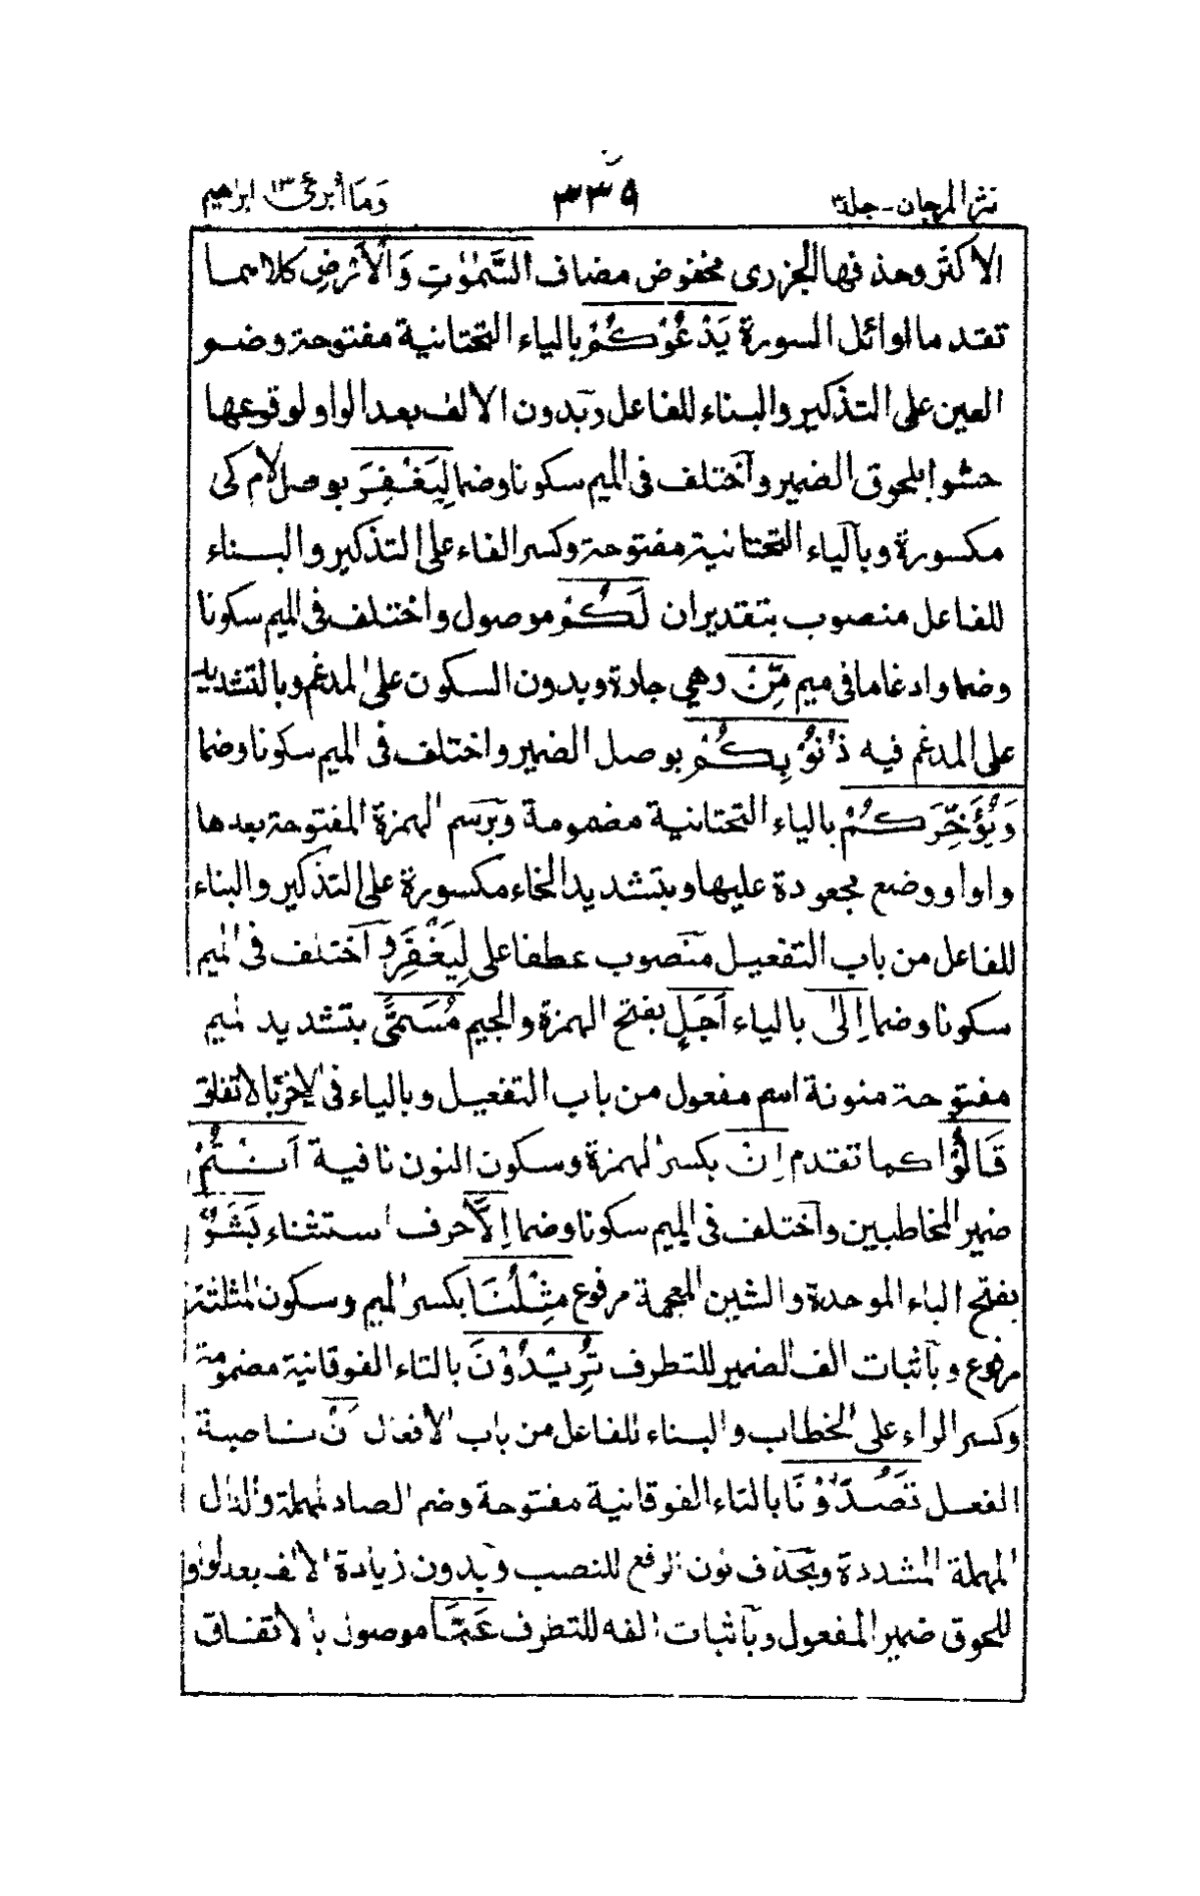 نثر المرجان - جلد ٣ ٣٣٩ وَمَا أُبَرِّئُ ١٣ ابراهيم
الاكثر وحذفها الجزرى مخفوض مضاف السَّمٰوٰتِ وَالْاَرْضِ كلاهما
تقدما اوائل السورة يَدْعُوْكُمْ بالياء التحتانية مفتوحة وضم
العين على التذكير والبناء للفاعل وبدون الالف بعد الواو لوقوعها
حشوا بلحوق الضمير واختلف فى الميم سكونا وضما لِيَغْفِرَ بوصل لام كى
مكسورة وبالياء التحتانية مفتوحة وكسر الفاء على التذكير والبناء
للفاعل منصوب بتقدير ان لَكُمْ موصول واختلف فى الميم سكونا
وضما وادغاما فى ميم مِّنْ وهي جارة وبدون السكون على المدغم وبالتشديد
على المدغم فيه ذُنُوْبِكُمْ بوصل الضمير واختلف فى الميم سكونا وضما
وَيُؤَخِّرَكُمْ بالياء التحتانية مضمومة وبرسم الهمزة المفتوحة بعدها
واوا ووضع مجعودة عليها وبتشديد الخاء مكسورة على التذكير والبناء
للفاعل من باب التفعيل منصوب عطفا على لِيَغْفِرَ واختلف فى الميم
سكونا وضما اِلٰى بالياء اَجَلٍ بفتح الهمزة والجيم مُسَمًّى بتشديد الميم
مفتوحة منونة اسم مفعول من باب التفعيل وبالياء فى الاخر بالاتفاق
قَالُوْا كما تقدم اِنْ بكسر الهمزة وسكون النون نافية اَنْتُمْ
ضمير المخاطبين واختلف فى الميم سكونا وضما اِلَّا حرف استثناء بَشَرٌ
بفتح الباء الموحدة والشين المعجمة مرفوع مِثْلُنَا بكسر الميم وسكون المثلثة
مرفوع وباثبات الف الضمير للتطرف تُرِيْدُوْنَ بالتاء الفوقانية مضمومة
وكسر الراء على الخطاب والبناء للفاعل من باب الافعال اَنْ ناصبة
الفعل تَصُدُّوْنَا بالتاء الفوقانية مفتوحة وضم الصاد المهملة والدال
المهملة المشددة وبحذف نون الرفع للنصب وبدون زيادة الالف بعد الواو
للحوق ضمير المفعول وباثبات الفه للتطرف عَمَّا موصول بالاتفاق